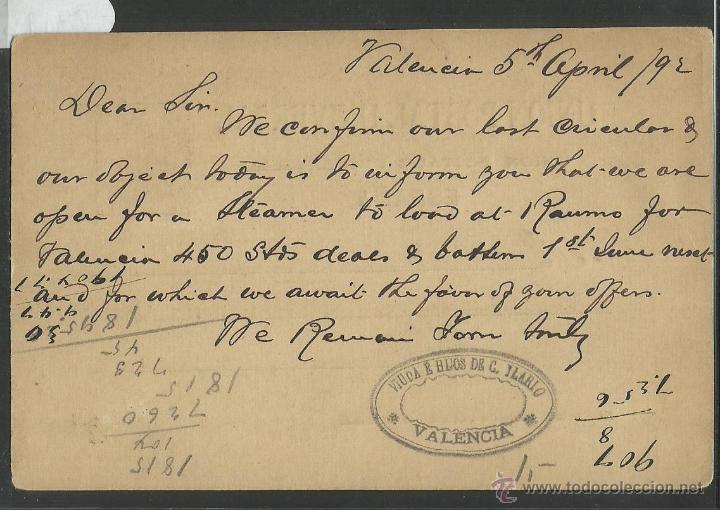 Valencia 5th April /92
Dear Sir.
We confirm our last circular &
our object today is to inform you that we are
open for a Steamer to load at Raumo for
Valencia 450 Stds deals & battens 1st June next
and for which we await the favor of your offers.
We Remain Yours truly
VIUDA É HIJOS DE C. ILARIO
VALENCIA
1845
45
723
1815
7260
1815
www.todocoleccion.net